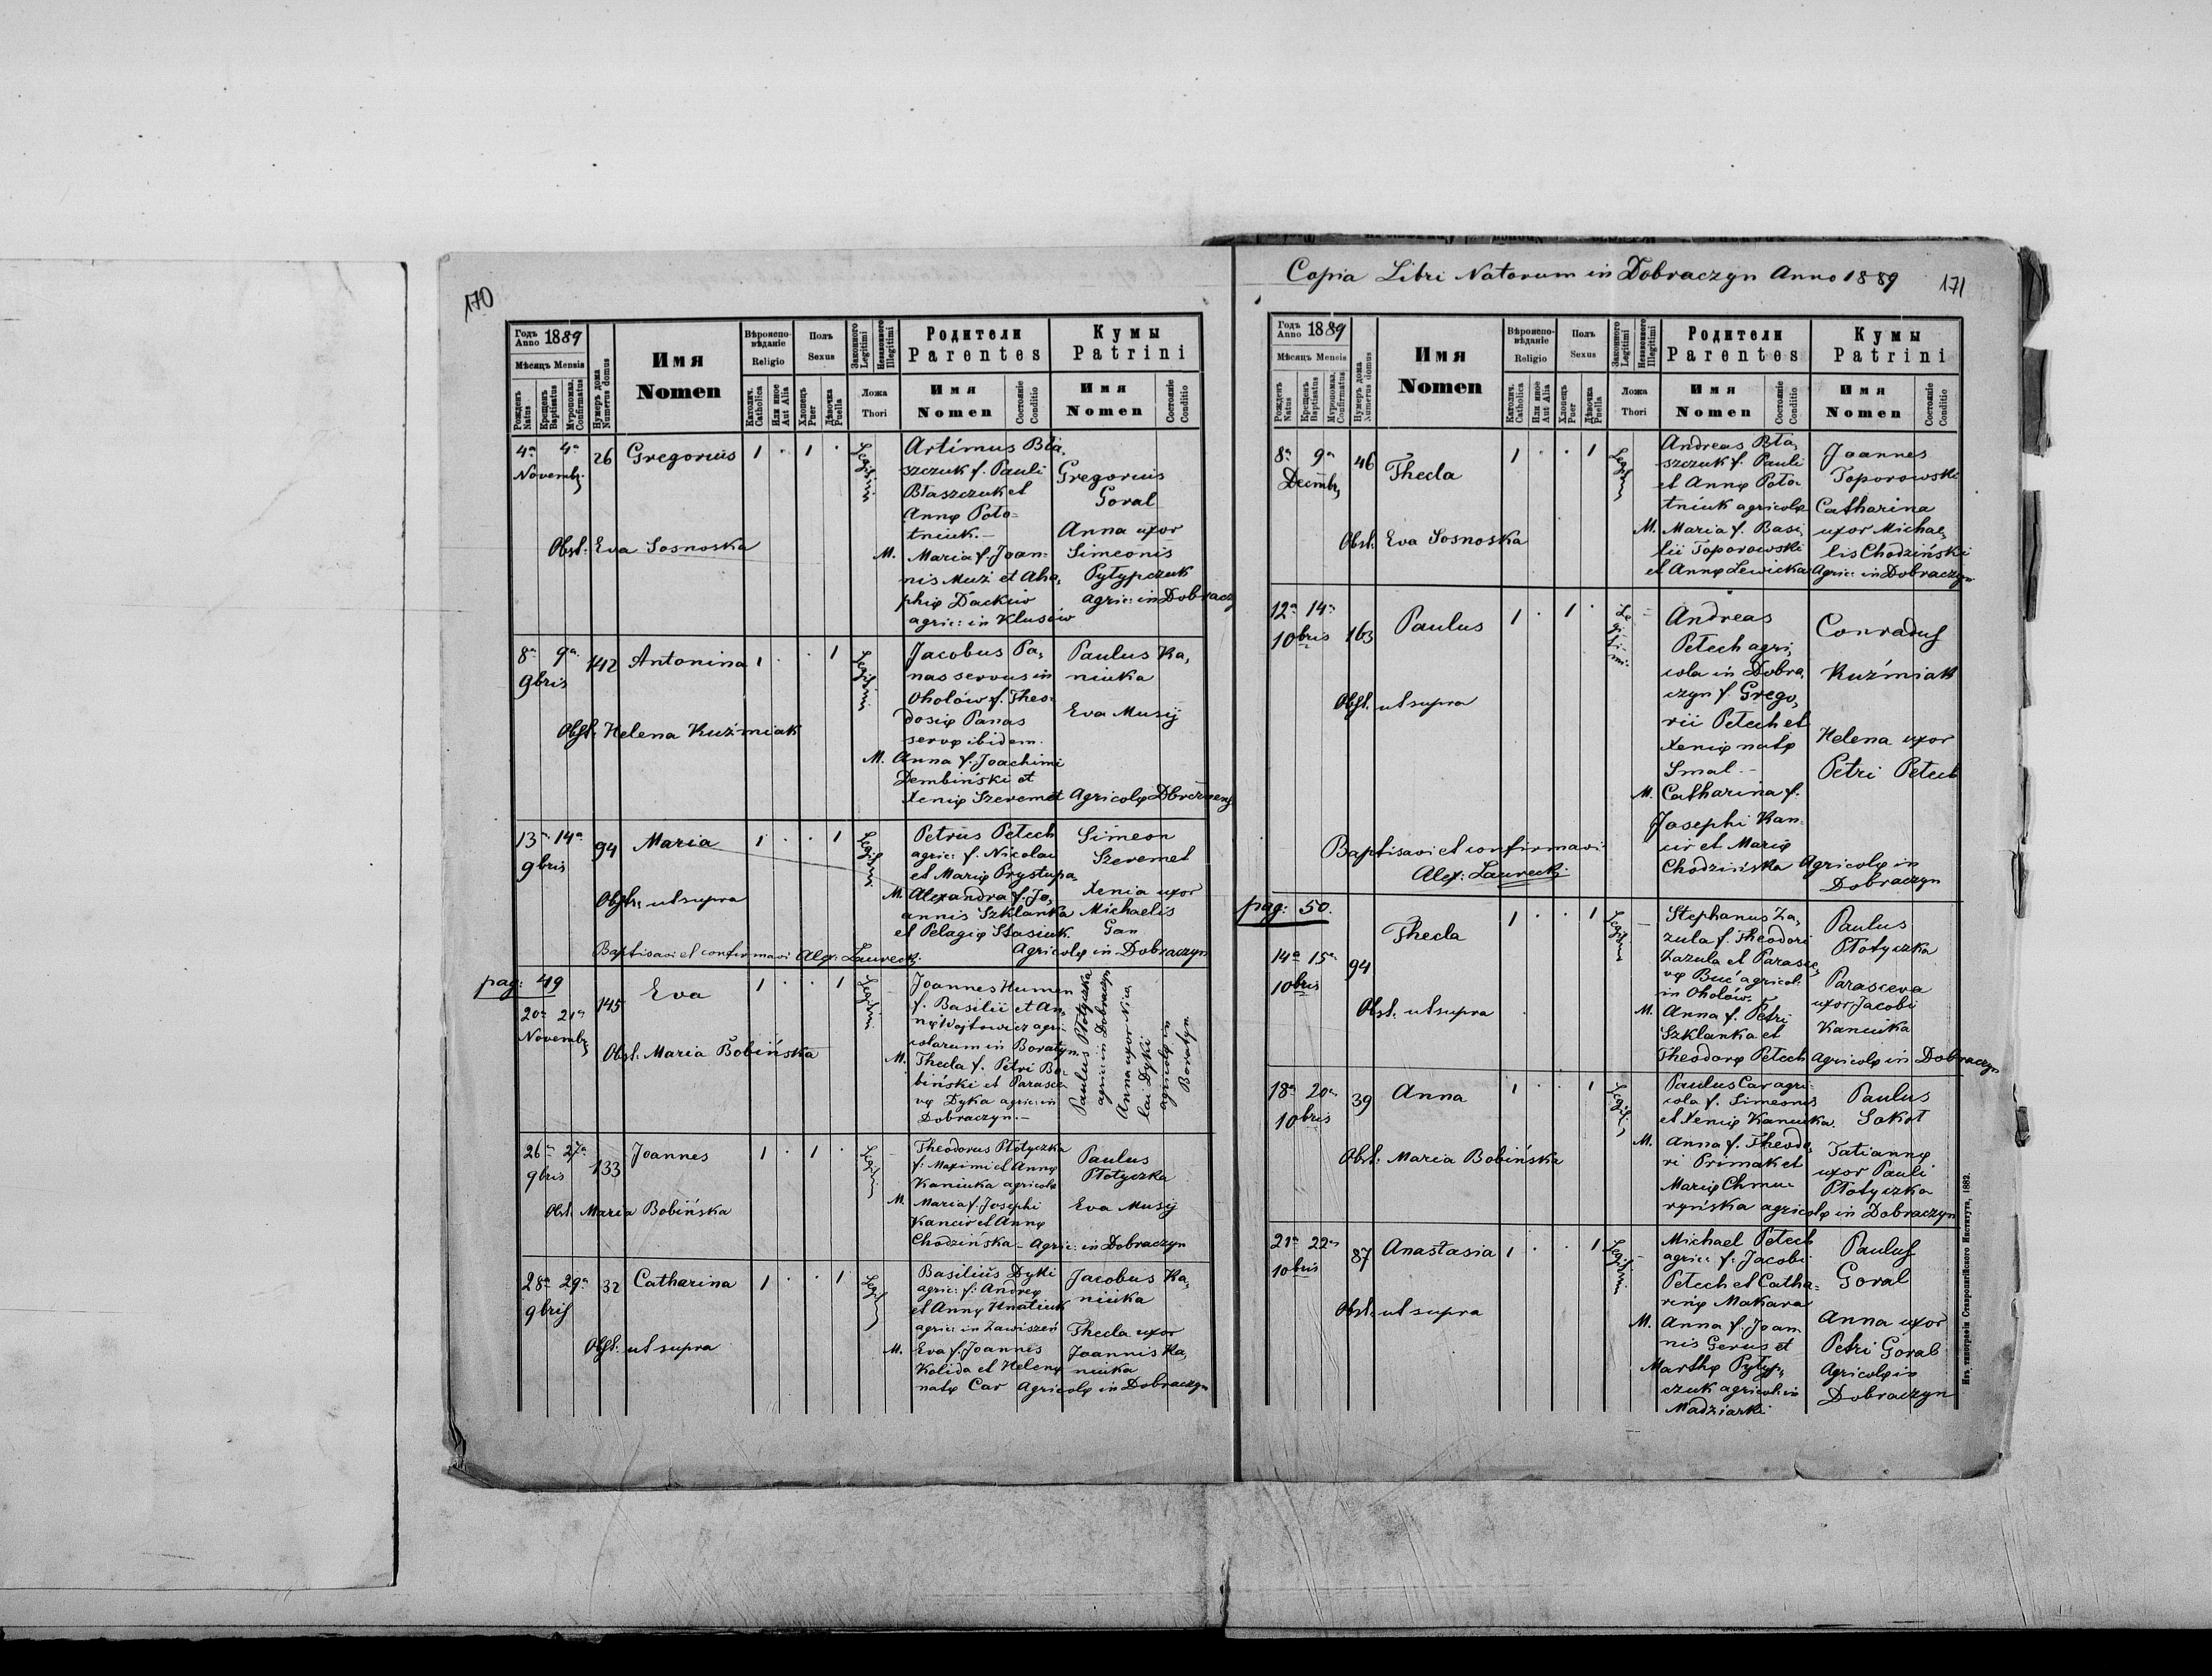 170
Годъ Anno 1889
Мѣсяцъ Mensis
Рожденъ Natus
Крещенъ Baptisatus
Муропомаз. Confirmatus
Нумеръ дома Numerus domus
Имя Nomen
Вѣроиспо-вѣданіе Religio
Католич. Catholica
Или иное Aut Alia
Полъ Sexus
Хлопецъ Puer
Дѣвочка Puella
Законного Legitimi
Незаконного Illegitimi
Ложа Thori
Родители Parentes
Имя Nomen
Состояніе Conditio
Кумы Patrini
Имя Nomen
Состояніе Conditio
4a 4a Novembr. 26 Gregorius 1 . 1 . Legitimi
Artimus Bła,
szczuk f. Pauli
Błaszczuk et
Annę Poło=
tniuk.-
M. Maria f. Joan=
nis Muzi et Aha,
phię Dackiw
agric: in Klusów
Gregorius
Goral
Anna uxor
Simeonis
Pyłypczuk
agric: in Dobracz
Obst: Eva Sosnoska
8a 9a 9bris 142 Antonina 1 . . 1 Legitimi
Jacobus Pa,
nas servus in
Oholów f. Theo,
dosię Panas
servę ibidem.
M. Anna f. Joachimi
Dembiński et
Xenię Szeremet
Paulus Ka,
niuka
Eva Musij
Agricolę
Obst: Helena Kuźmiak
13a 14a 9bris 94 Maria 1 . . 1 Legitimi
Petrus Petech
agric: f. Nicolai
et Marię Prystupa
M. Alexandra f. Jo,
annis Szklanka
et Pelagię Stasiuk.
Simeon
Szeremet
Xenia uxor
Michaelis
Gan
Agricolę in Dobraczyn
Obst: ut supra
Baptisavi et confirmavi Alex: Laurecki
pag: 49
20a 21a Novembr 145 Eva 1 . . 1 Legitimi
Joannes Humen
f. Basilii et An,
nę Wojtowicz agri
colarum in Boratyn.
M. Thecla f. Petri Bo=
biński et Parasce
vę Dyka agric: in
Dobraczyn.-
Paulus Płotyczka
agric: in Dobraczyn
Anna uxor Nico,
lai Dyki
agricolę in
Boratyn
Obst: Maria Bobińska
26a 27a 9bris 133 Joannes 1 . 1 . Legitimi
Theodorus Płotyczka
f. Maximi et Annę
Kaniuka agricolę
M. Maria f. Josephi
Kancir et Annę
Chodzińska - Agric: in Dobraczyn
Paulus
Płotyczka
Eva Musij
Obst. Maria Bobińska
28a 29a 9bris 32 Catharina 1 . . 1 Legitimi
Basilius Dyki
agric: f: Andreę
et Annę Hnatiuk
agric: in Zawiszeń
M. Eva f. Joannes
Kolida et Helenę
natę Car
Jacobus Ka,
niuka
Thecla uxor
Joannis Ka,
niuka
Agricolę in Dobraczyn
Obst. ut supra
Copia Libri Natorum in Dobraczyn Anno 1889
171
Годъ Anno 1889
Мѣсяцъ Mensis
Рожденъ Natus
Крещенъ Baptisatus
Муропомаз. Confirmatus
Нумеръ дома Numerus domus
Имя Nomen
Вѣроиспо-вѣданіе Religio
Католич. Catholica
Или иное Aut Alia
Полъ Sexus
Хлопецъ Puer
Дѣвочка Puella
Законного Legitimi
Незаконного Illegitimi
Ложа Thori
Родители Parentes
Имя Nomen
Состояніе Conditio
Кумы Patrini
Имя Nomen
Состояніе Conditio
8a 9a Decembr 46 Thecla 1 . . 1 Legitimi
Andreas Bła,
szczuk f. Pauli
et Annę Poło=
tniuk agricolę
M. Maria f. Basi,
lii Toporowski
et Annę Lewicka
Joannes
Toporowski
Catharina
uxor Michae,
lis Chodziński
Agric: in Dobraczyn
Obst. Eva Sosnoska
12a 14a 10bris 163 Paulus 1 . 1 . Legitimi
Andreas
Petech agri,
cola in Dobra,
czyn f. Grego,
rii Petech et
Xenię natę
Smal.-
M. Catharina f.
Josephi Kan=
cir et Marię
Chodzińska
Conradus
Kuźmiak
Helena uxor
Petri Petech
Agricolę in
Dobraczyn
Obst. ut supra
Baptisavi et confirmavi
Alex: Laurecki
pag: 50.
14a 15a 10bris 94 Thecla 1 . . 1 Legitimi
Stephanus Za,
zula f. Theodori
Zazula et Parasce,
vę Buć agricol.
in Oholów.
M. Anna f. Petri
Szklanka et
Theodorę Petech
Paulus
Płotyczka
Parasceva
uxor Jacobi
Kaniuka
Agricolę in Dobraczyn
Obst. ut supra
18a 20a 10bris 39 Anna 1 . . 1
Paulus Car agri=
cola f. Simeonis
et Xenię Kaniuka.
M. Anna f. Theodo,
ri Primak et
Marię Chmu=
ryńska agricolę in Dobraczyn
Paulus
Sokoł
Tatiannę
uxor Pauli
Płotyczka
Obst: Maria Bobińska
21a 22a 10bris 87 Anastasia 1 . . 1 Legitimi
Michael Petech
agric: f: Jacobi
Petech et Catha=
rinę Makara
M. Anna f. Joan
nis Gerus et
Marthę Pyłyp,
czuk agricol: in
Madziarki
Paulus
Goral
Anna uxor
Petri Goral
Agricolę in
Dobraczyn
Obst. ut supra
Изъ типографіи Ставропигійского Института, 1882.